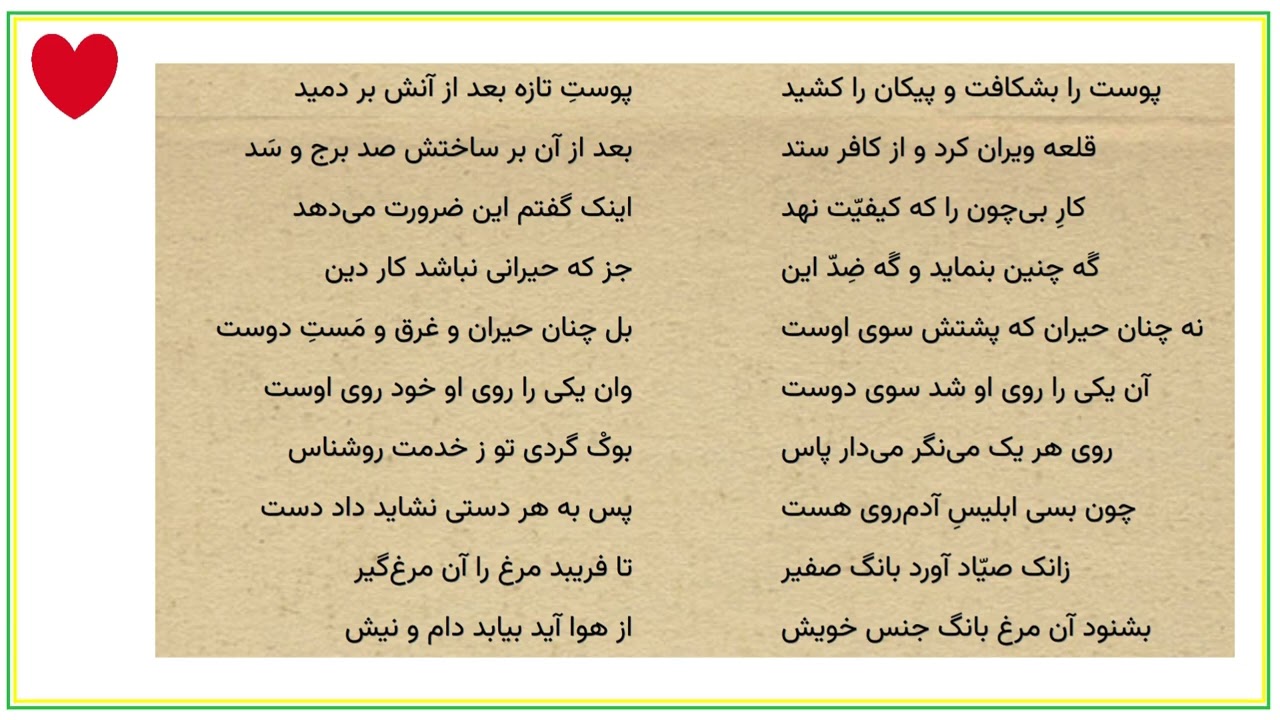 پوست را بشکافت و پیکان را کشید پوستِ تازه بعد از آنش بر دمید
قلعه ویران کرد و از کافر ستد بعد از آن بر ساختش صد برج و سَد
کارِ بی‌چون را که کیفیّت نهد اینک گفتم این ضرورت می‌دهد
گَه چنین بنماید و گَه ضِدّ این جز که حیرانی نباشد کار دین
نه چنان حیران که پشتش سوی اوست بل چنان حیران و غرق و مَستِ دوست
آن یکی را روی او شد سوی دوست وان یکی را روی او خود روی اوست
روی هر یک می‌نگر می‌دار پاس بوکْ گردی تو ز خدمت روشناس
چون بسی ابلیسِ آدم‌روی هست پس به هر دستی نشاید داد دست
زانک صیّاد آورد بانگ صفیر تا فریبد مرغ را آن مرغ‌گیر
بشنود آن مرغ بانگ جنس خویش از هوا آید بیابد دام و نیش